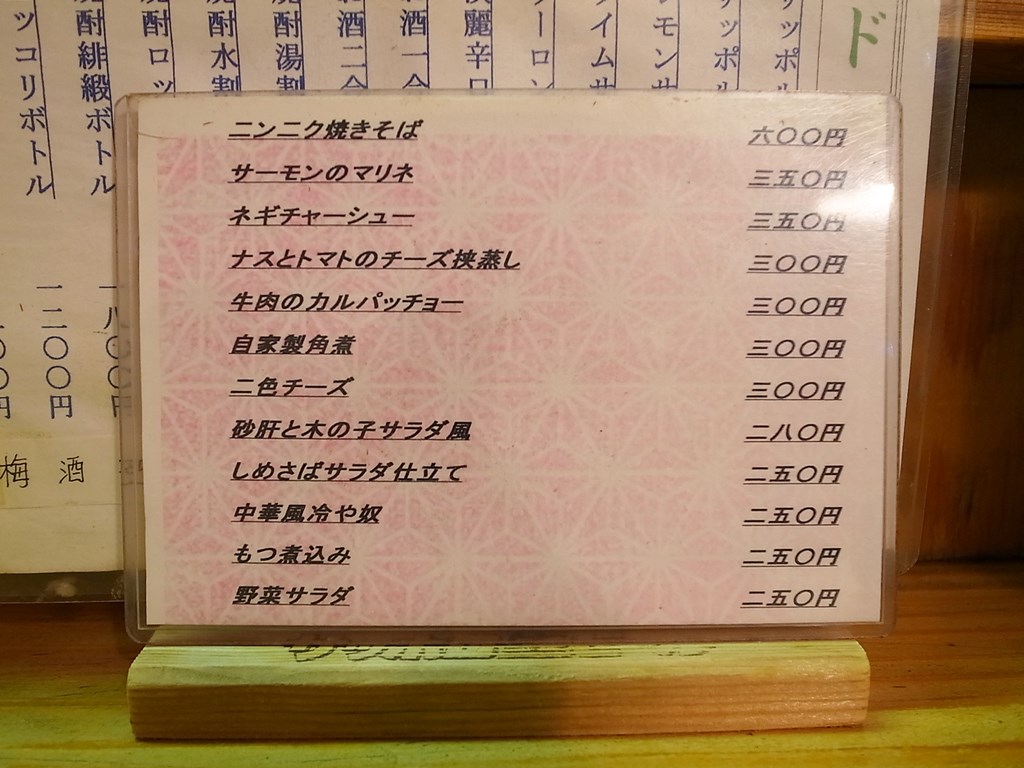 ニンニク焼きそば 六〇〇円
サーモンのマリネ 三五〇円
ネギチャーシュー 三五〇円
ナスとトマトのチーズ挟蒸し 三〇〇円
牛肉のカルパッチョー 三〇〇円
自家製角煮 三〇〇円
二色チーズ 三〇〇円
砂肝と木の子サラダ風 二八〇円
しめさばサラダ仕立て 二五〇円
中華風冷や奴 二五〇円
もつ煮込み 二五〇円
野菜サラダ 二五〇円
ド
ッポル
ッポル
モンサ
イムサ
ーロン
麗辛口
酒一合
酒二合
酎湯割
酎水割
酎ロッ
酎緋緞ボトル
ッコリボトル
一八〇〇円
一二〇〇円
梅酒